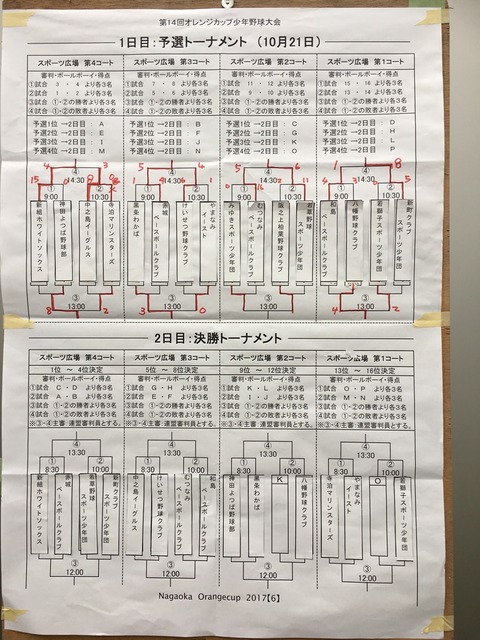 第14回オレンジカップ少年野球大会
1日目：予選トーナメント （10月21日）
スポーツ広場 第4コート
審判・ボールボーイ・得点
①試合 3 ・ 4 より各3名
②試合 1 ・ 2 より各3名
③試合 ①・②の勝者より各3名
④試合 ①・②の敗者より各3名
予選1位 →2日目 : A
予選2位 →2日目 : E
予選3位 →2日目 : I
予選4位 →2日目 : M
④
14:30
①
9:00
②
10:30
新組ホワイトソックス
神田よつば野球部
中之島イーグルス
寺泊マリンスターズ
③
13:00
8
2
スポーツ広場 第3コート
審判・ボールボーイ・得点
①試合 7 ・ 8 より各3名
②試合 5 ・ 6 より各3名
③試合 ①・②の勝者より各3名
④試合 ①・②の敗者より各3名
予選1位 →2日目 : B
予選2位 →2日目 : F
予選3位 →2日目 : J
予選4位 →2日目 : N
④
14:30
①
9:00
②
10:30
黒条わかば
赤城ベースボールクラブ
けいせつ野球クラブ
やまなみイースト
③
13:00
3
0
スポーツ広場 第2コート
審判・ボールボーイ・得点
①試合 11 ・ 12 より各3名
②試合 9 ・ 10 より各3名
③試合 ①・②の勝者より各3名
④試合 ①・②の敗者より各3名
予選1位 →2日目 : C
予選2位 →2日目 : G
予選3位 →2日目 : K
予選4位 →2日目 : O
④
14:30
①
9:00
②
10:30
みゆきスポーツ少年団
むつなみベースボールクラブ
阪之上柏葉野球クラブ
若草野球スポーツ少年団
③
13:00
スポーツ広場 第1コート
審判・ボールボーイ・得点
①試合 15 ・ 16 より各3名
②試合 13 ・ 14 より各3名
③試合 ①・②の勝者より各3名
④試合 ①・②の敗者より各3名
予選1位 →2日目 : D
予選2位 →2日目 : H
予選3位 →2日目 : L
予選4位 →2日目 : P
④
14:30
①
9:00
②
10:30
和島ベースボールクラブ
八幡野球クラブ
若獅子スポーツ少年団
新町クラブ
③
13:00
4
2
2日目：決勝トーナメント
スポーツ広場 第4コート
1位 ～ 4位決定
審判・ボールボーイ・得点
①試合 C ・ D より各3名
②試合 A ・ B より各3名
③試合 ①・②の勝者より各3名
④試合 ①・②の敗者より各3名
※③・④主審：連盟審判員とする。
④
13:30
①
8:30
②
10:00
新組ホワイトソックス
赤城ベースボールクラブ
若草野球スポーツ少年団
新町クラブ
③
12:00
スポーツ広場 第3コート
5位 ～ 8位決定
審判・ボールボーイ・得点
①試合 G ・ H より各3名
②試合 E ・ F より各3名
③試合 ①・②の勝者より各3名
④試合 ①・②の敗者より各3名
※③・④主審：連盟審判員とする。
④
13:30
①
8:30
②
10:00
中之島イーグルス
けいせつ野球クラブ
むつなみベースボールクラブ
和島ベースボールクラブ
③
12:00
スポーツ広場 第2コート
9位 ～ 12位決定
審判・ボールボーイ・得点
①試合 K ・ L より各3名
②試合 I ・ J より各3名
③試合 ①・②の勝者より各3名
④試合 ①・②の敗者より各3名
※③・④主審：連盟審判員とする。
④
13:30
①
8:30
②
10:00
神田よつば野球部
黒条わかば
K
八幡野球クラブ
③
12:00
スポーツ広場 第1コート
13位 ～ 16位決定
審判・ボールボーイ・得点
①試合 O ・ P より各3名
②試合 M ・ N より各3名
③試合 ①・②の勝者より各3名
④試合 ①・②の敗者より各3名
※③・④主審：連盟審判員とする。
④
13:30
①
8:30
②
10:00
寺泊マリンスターズ
やまなみイースト
O
若獅子スポーツ少年団
③
12:00
Nagaoka Orangecup 2017【6】